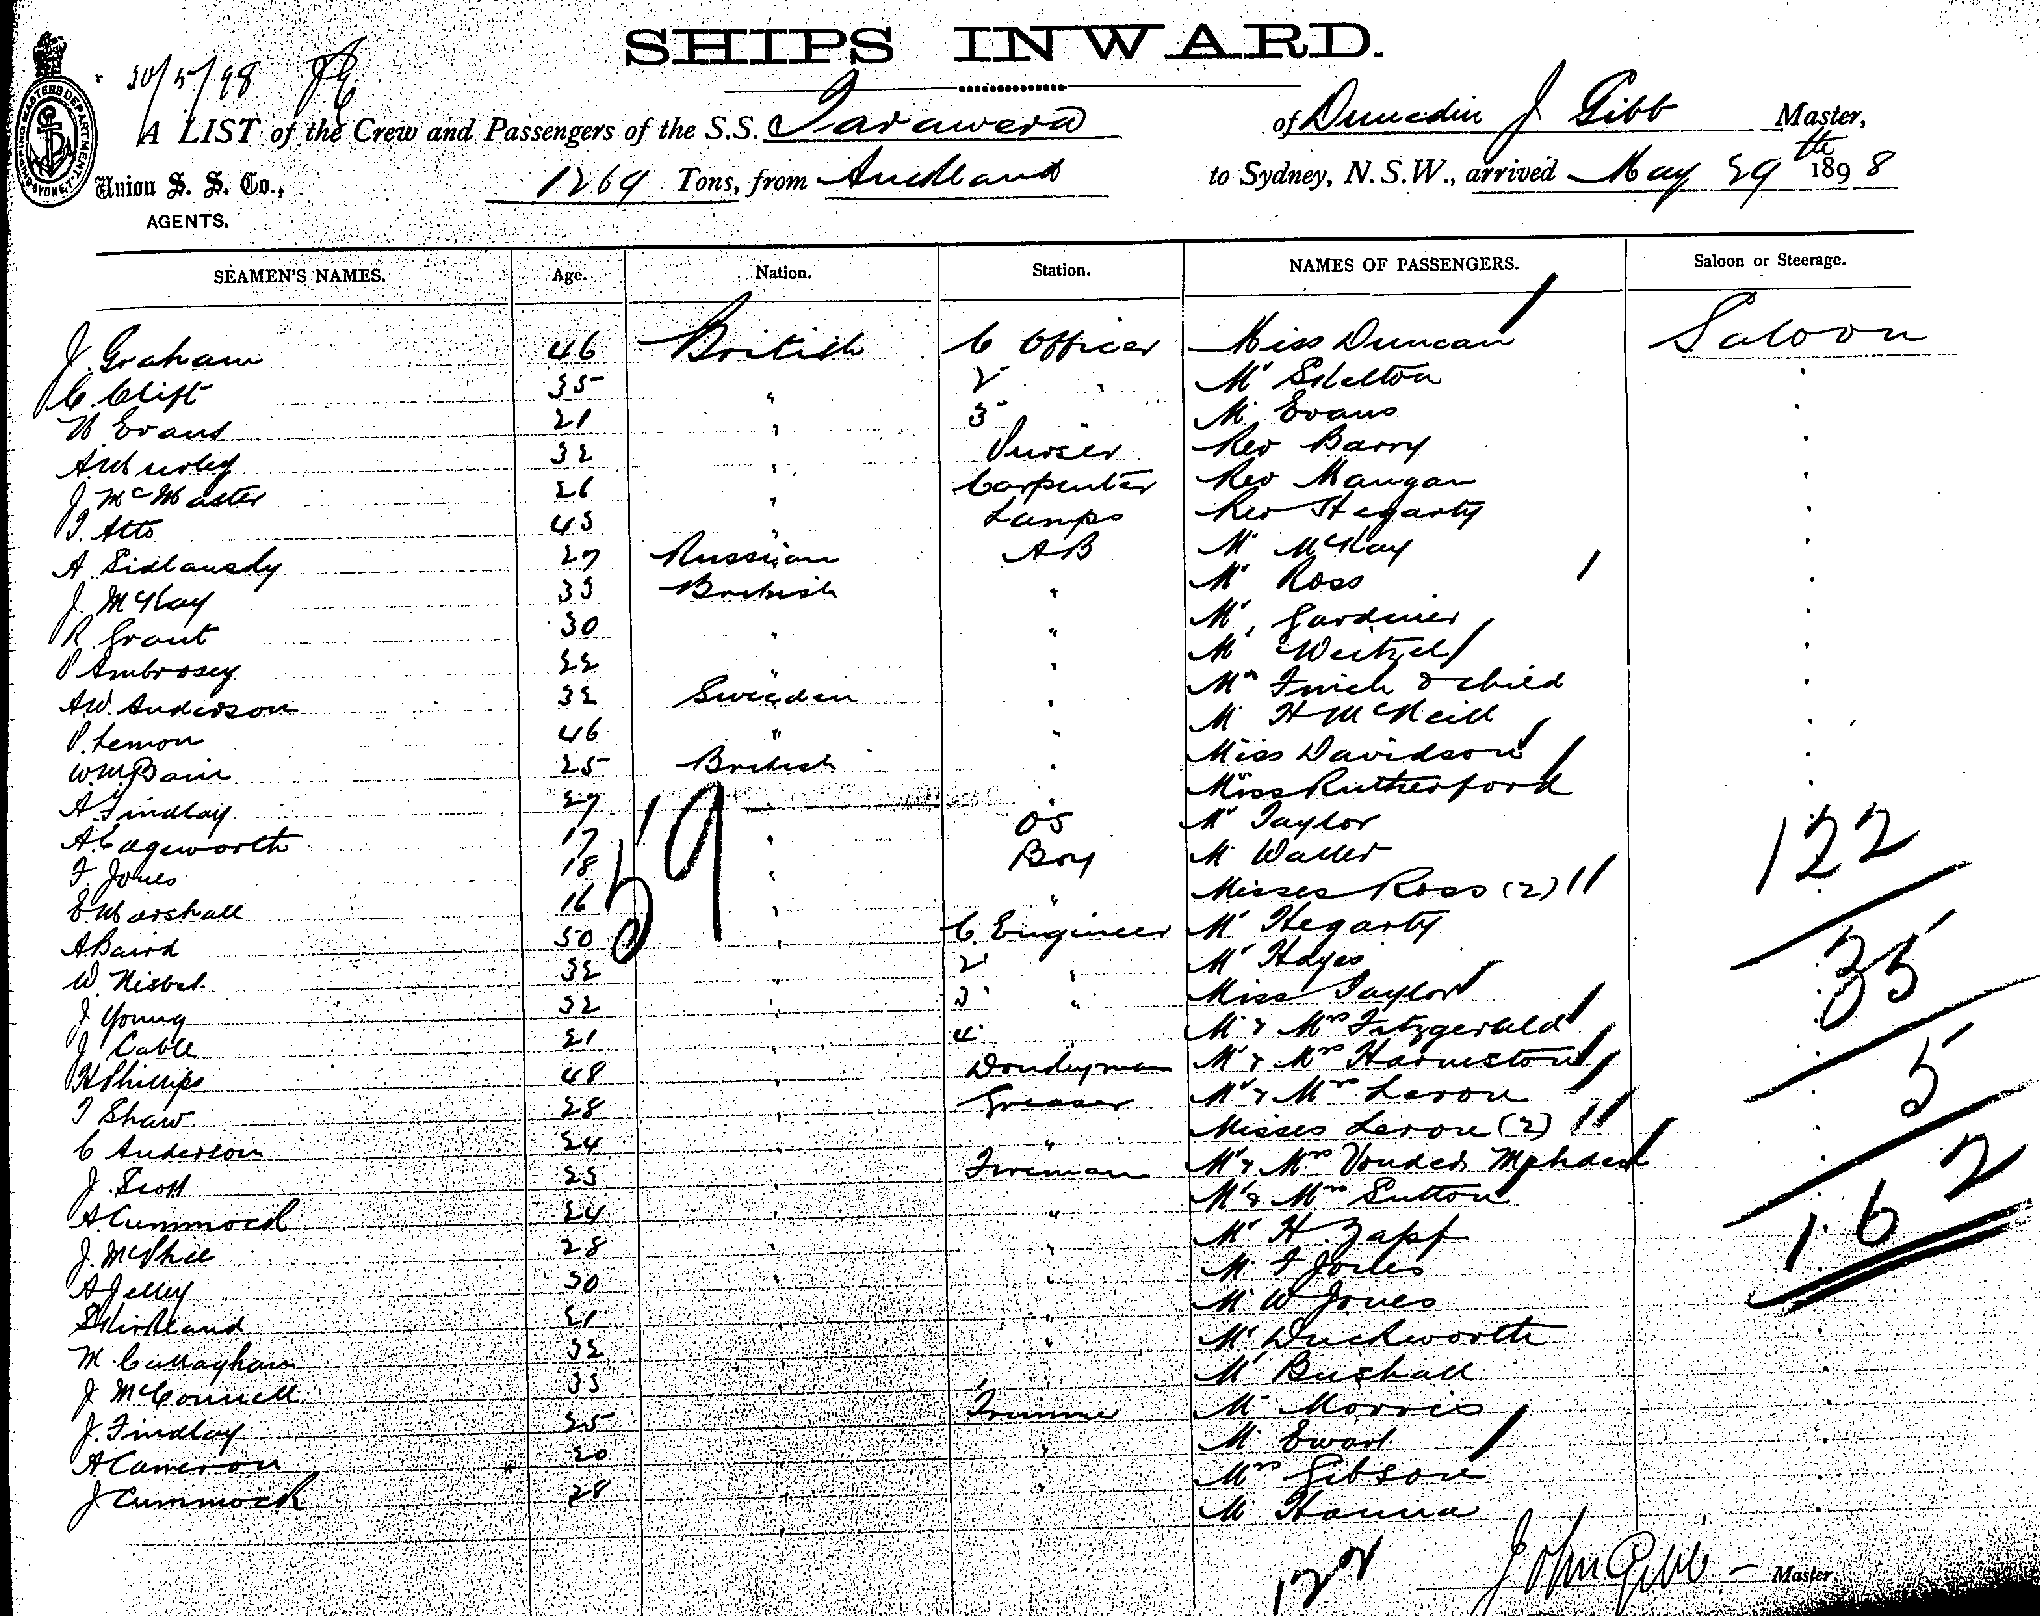 SHIPS INWARD.
30/5/98
A LIST of the Crew and Passengers of the S.S. Tarawera of Dunedin J Gibb Master,
Union S. S. Co., 1269 Tons, from Auckland to Sydney, N.S.W., arrived May 29th 1898
AGENTS.
SEAMEN'S NAMES. Age. Nation. Station. NAMES OF PASSENGERS. Saloon or Steerage.
J. Graham 46 British C Officer Miss Duncan Saloon
C. Clift 35 " 2 " Mr Skelton "
W Evans 21 " 3 Mr Evans "
32 " Purser Rev Barry "
J McMaster 26 " Carpenter Rev Mangan "
43 " Lamps Rev Hegarty "
A. Sidlausky 27 Russian AB Mr McKay "
J. McKay 33 British " Mr Ross "
R. Grant 30 " " Mr Gardiner "
P Ambrosey 22 " " Mr Weitzel "
A.W. Anderson 32 Sweeden " Mrs Finch & child "
P. Lemon 46 " " Mr H McNeill "
Wm Bain 25 British " Miss Davidson "
A. Findlay 27 " " Miss Rutherford "
A Edgeworth 17 " OS Mr Taylor
F. Jones 18 " Boy Mr Waller 122
E Marshall 16 " " Misses Ross (2)
59
A Baird 50 " C. Engineer Mr Hegarty 35
W. Nisbet 32 " 2 " Mr Hayes
J Young 32 " 3 " Miss Taylor
J Cable 21 " 4 Mr & Mrs Fitzgerald 5
H Phillips 48 " Donkeyman Mr & Mrs Harmston
T Shaw 28 " Greaser Mr & Mrs Leron
C Anderson 24 " " Misses Leron (2)
J. Scott 23 " Fireman Mr & Mrs 162
A Cummock 24 " " Mr & Mrs Sutton
J. McPhee 28 " " Mr H. Zapf
A Jelley 30 " " Mr F Jones
S Kirkland 21 " " Mr W Jones
M. Callaghan 32 " " Mr Duckworth
J McConnell 33 " " Mr Bushall
J. Findlay 25 " Trimmer Mr Morris
A Cameron 20 " " Mr Ewart
J Cummock 28 " " Mrs Gibson
Mr Hanna
122 John Gibb Master.